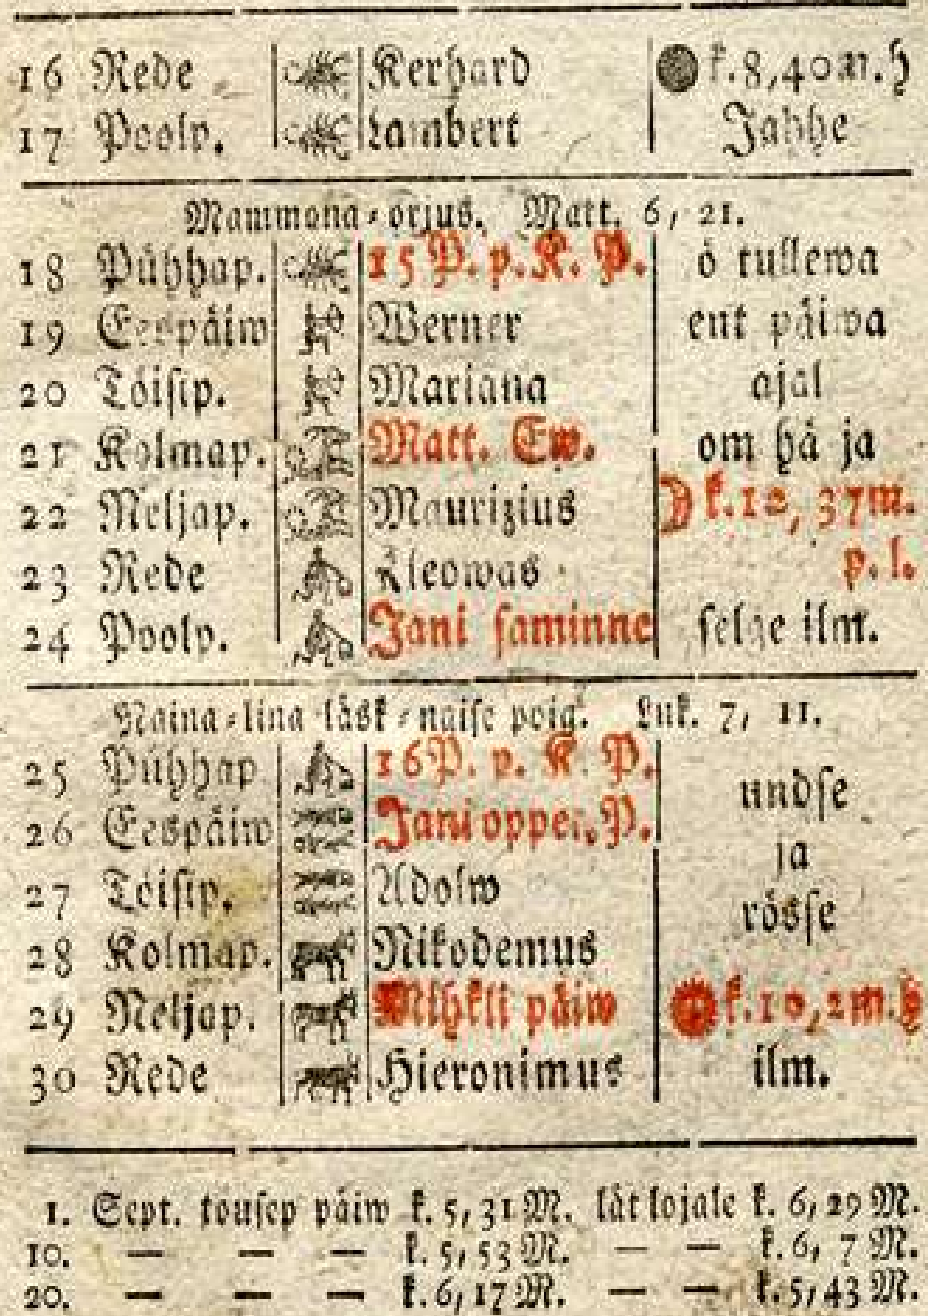 16 Rede Kerhard k. 8, 40 m. h
17 Poolp. Lambert Jahhe
Mammona-orjus. Matt. 6, 21.
18 Pühhap. 15 P. p. K. P. ö tullewa
19 Eespäiw Werner ent päiwa
20 Töisip. Mariana ajal
21 Kolmap. Matt. Ew. om hä ja
22 Neljap. Maurizius k. 12, 37 m.
p. l.
23 Rede Kleowas
24 Poolp. Jani saminne selge ilm.
Naina-lina läsk-naise poig. Luk. 7, 11.
25 Pühhap 16 P. p. K. P.
26 Eespäiw Jani opper. P. undse
27 Töisip. Adolw ja
28 Kolmap. Nikodemus rösse
29 Neljap. Mihkli päiw k. 10, 2 m. h
30 Rede Hieronimus ilm.
1. Sept. tousep päiw k. 5, 31 M. lät lojale k. 6, 29 M.
10. — — — k. 5, 53 M. — — k. 6, 7 M.
20. — — — k. 6, 17 M. — — k. 5, 43 M.